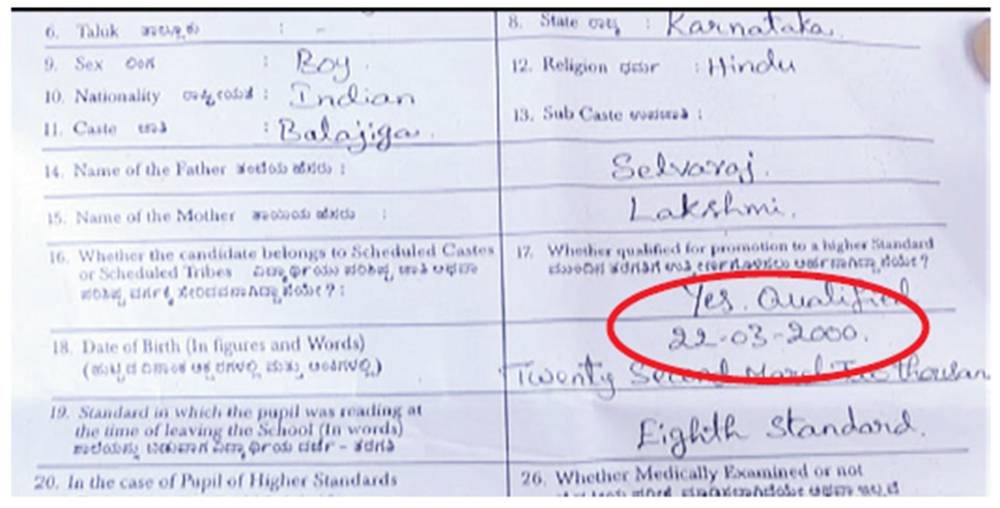 6. Taluk ತಾಲ್ಲೂಕು : -
8. State ರಾಜ್ಯ : Karnataka.
9. Sex ಲಿಂಗ : Boy.
12. Religion ಧರ್ಮ : Hindu
10. Nationality ರಾಷ್ಟ್ರೀಯತೆ : Indian
13. Sub Caste ಉಪಜಾತಿ :
11. Caste ಜಾತಿ : Balajiga.
14. Name of the Father ತಂದೆಯ ಹೆಸರು : Selvaraj.
15. Name of the Mother ತಾಯಿಯ ಹೆಸರು : Lakshmi.
16. Whether the candidate belongs to Scheduled Castes
or Scheduled Tribes
17. Whether qualified for promotion to a higher Standard
Yes. Qualified
18. Date of Birth (In figures and Words)
22-03-2000.
Twenty Second March Two thousan
19. Standard in which the pupil was reading at
the time of leaving the School (In words)
Eighth Standard.
20. In the case of Pupil of Higher Standards
26. Whether Medically Examined or not